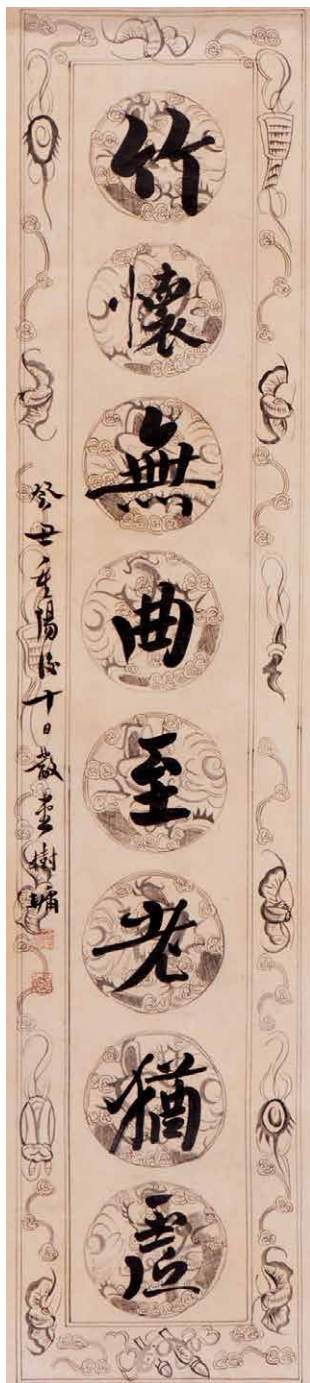 竹懷無曲至老猶虛
癸丑重陽後十日樹鏞